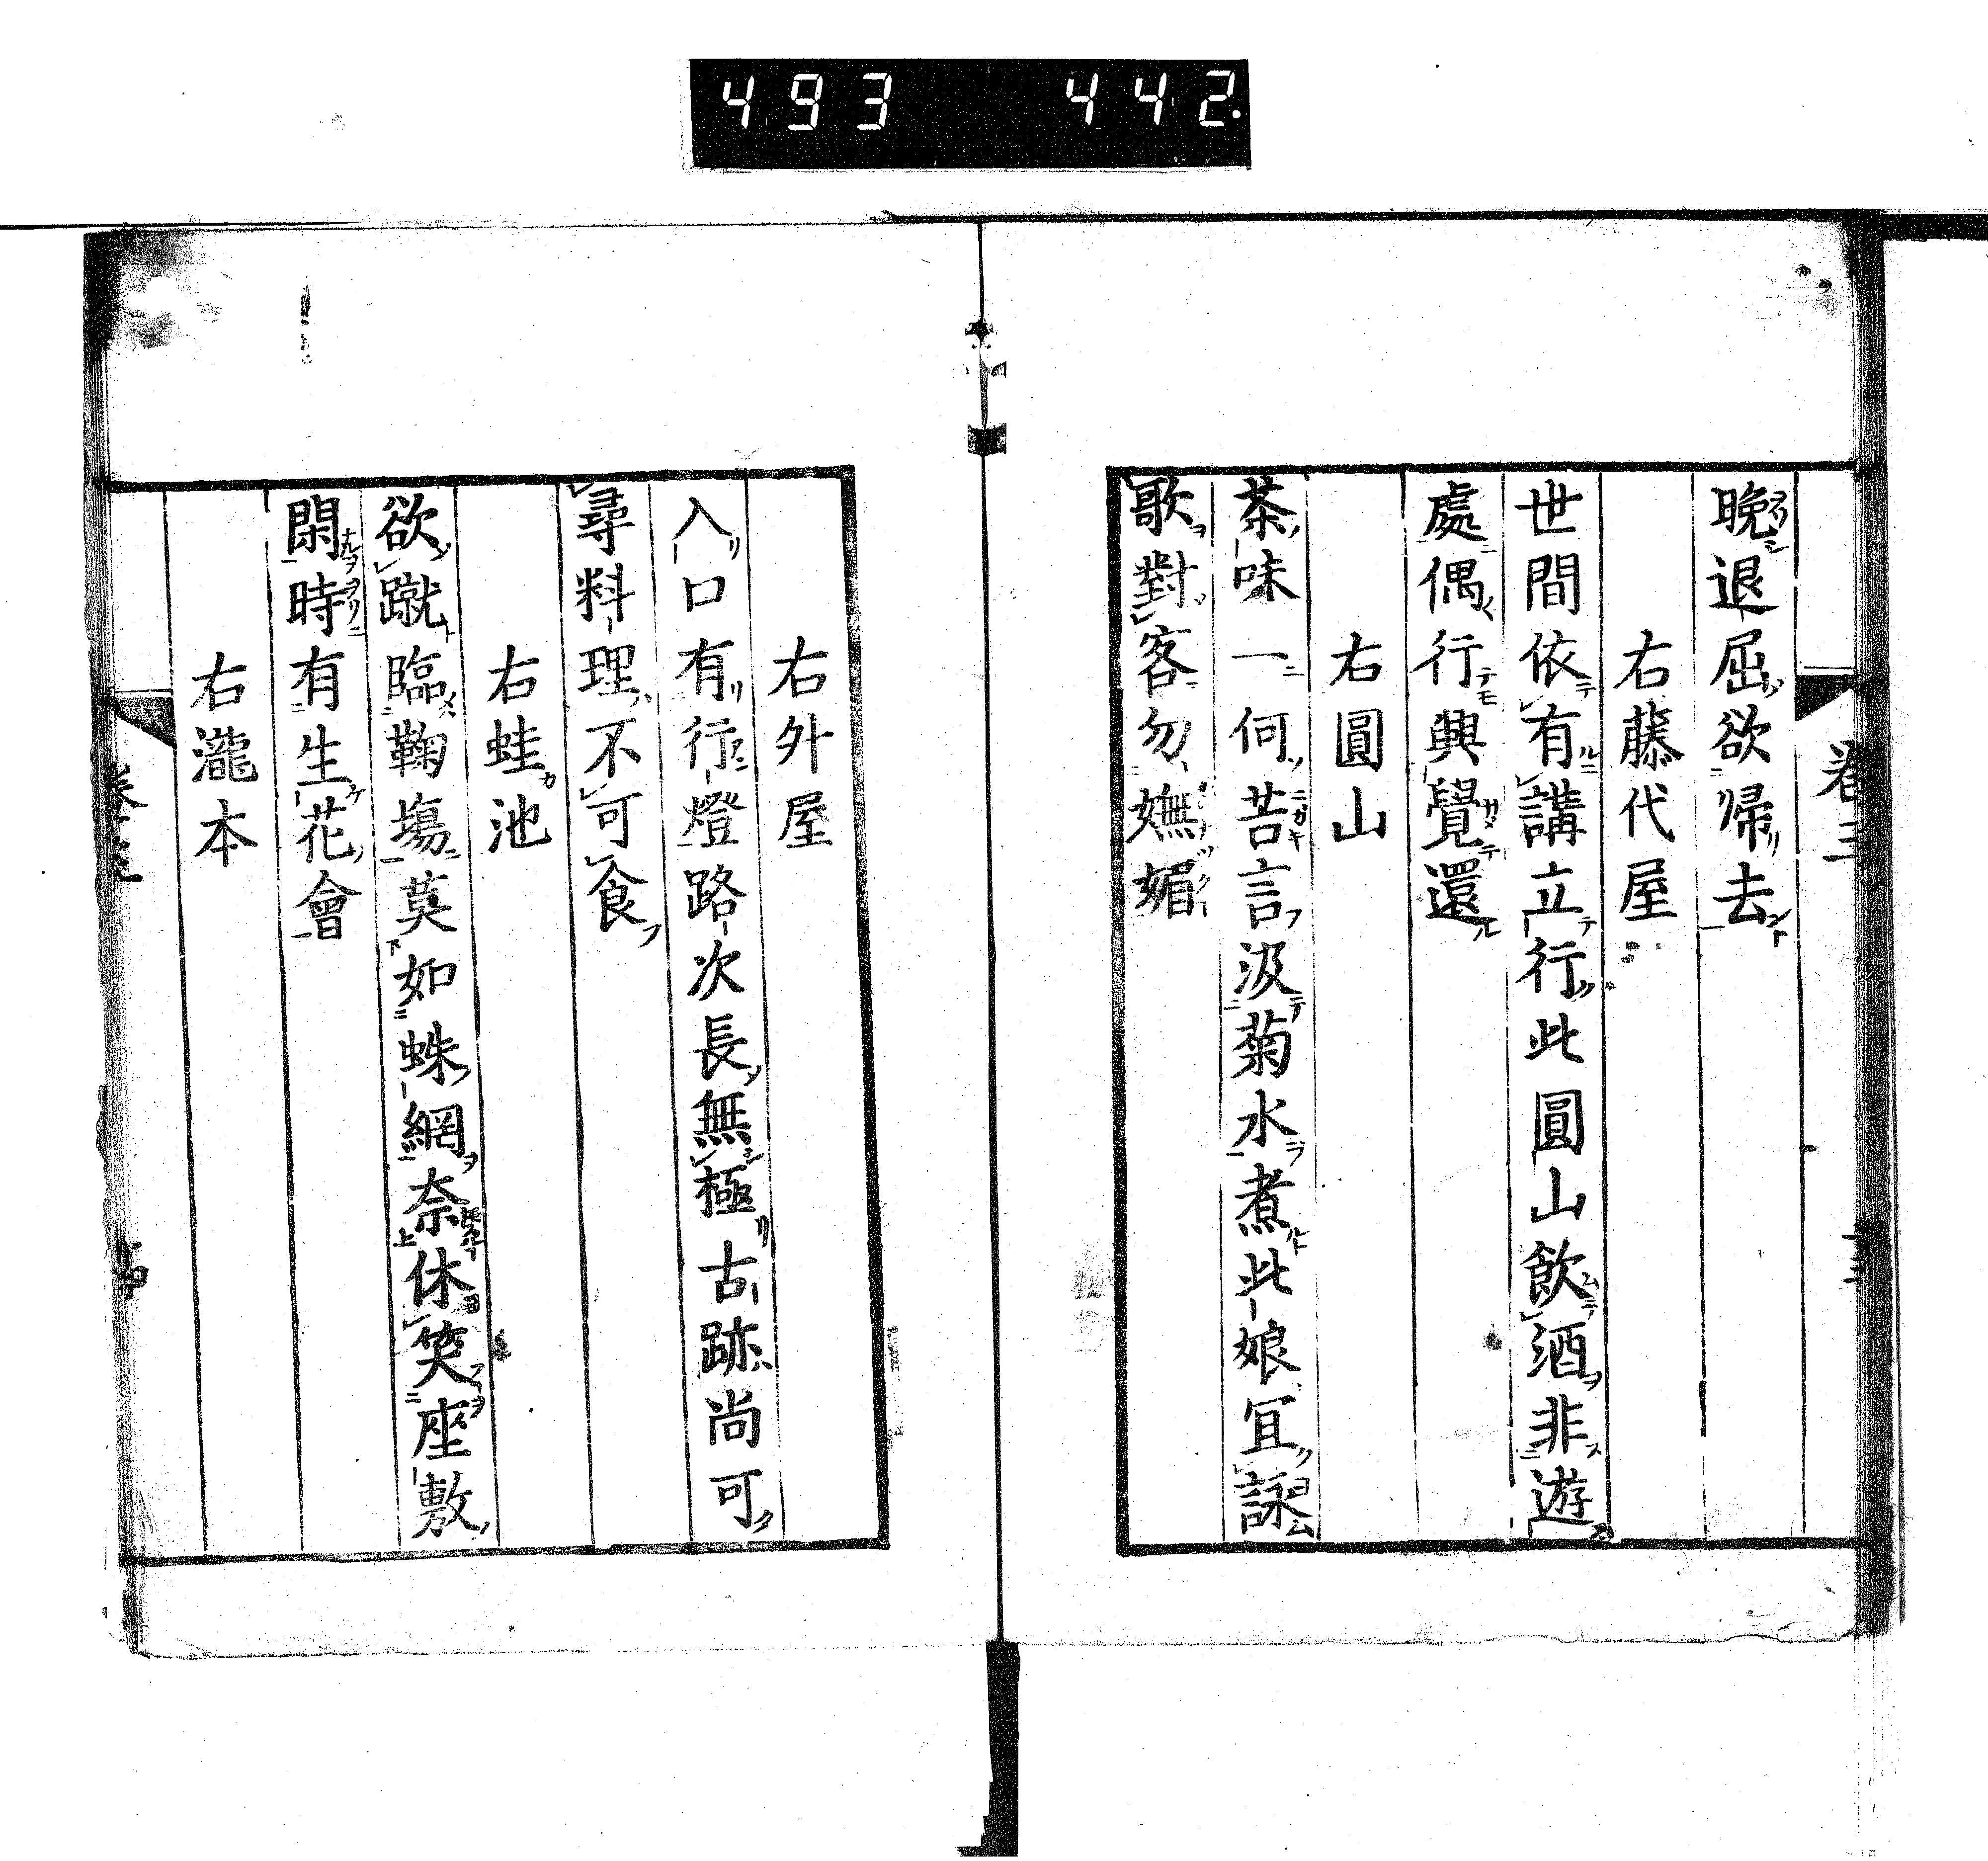 493 442.
卷三
晩退屈欲帰去
右藤代屋
世間依有講立行此圓山飲酒非遊
處偶行興覺還
右圓山
茶味一何苦言汲菊水煮此娘冝詠
歌對客勿嫵媚
右外屋
入口有行燈路次長無極古跡尚可
尋料理不可食
右蛙池
欲蹴臨鞠塲莫如蛛網奈休笑座敷
閑時有生花會
右瀧本